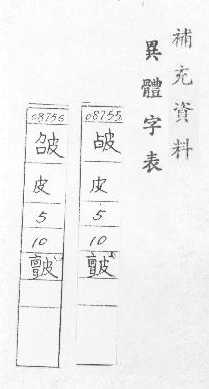 補充資料
異體字表
08755
皮
5
10
皽
08756
皮
5
10
皽